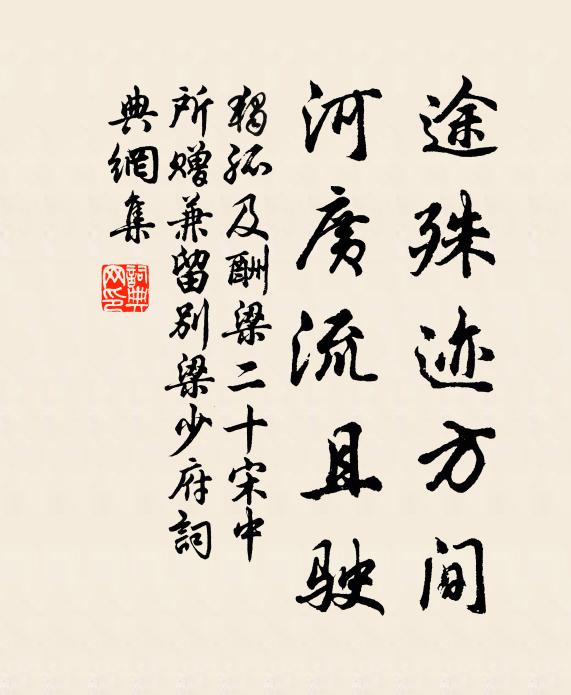 途殊迹方间
河广流且驶
独孤及酬梁二十宋中
所赠兼留别梁少府词
典网集
詞典网印